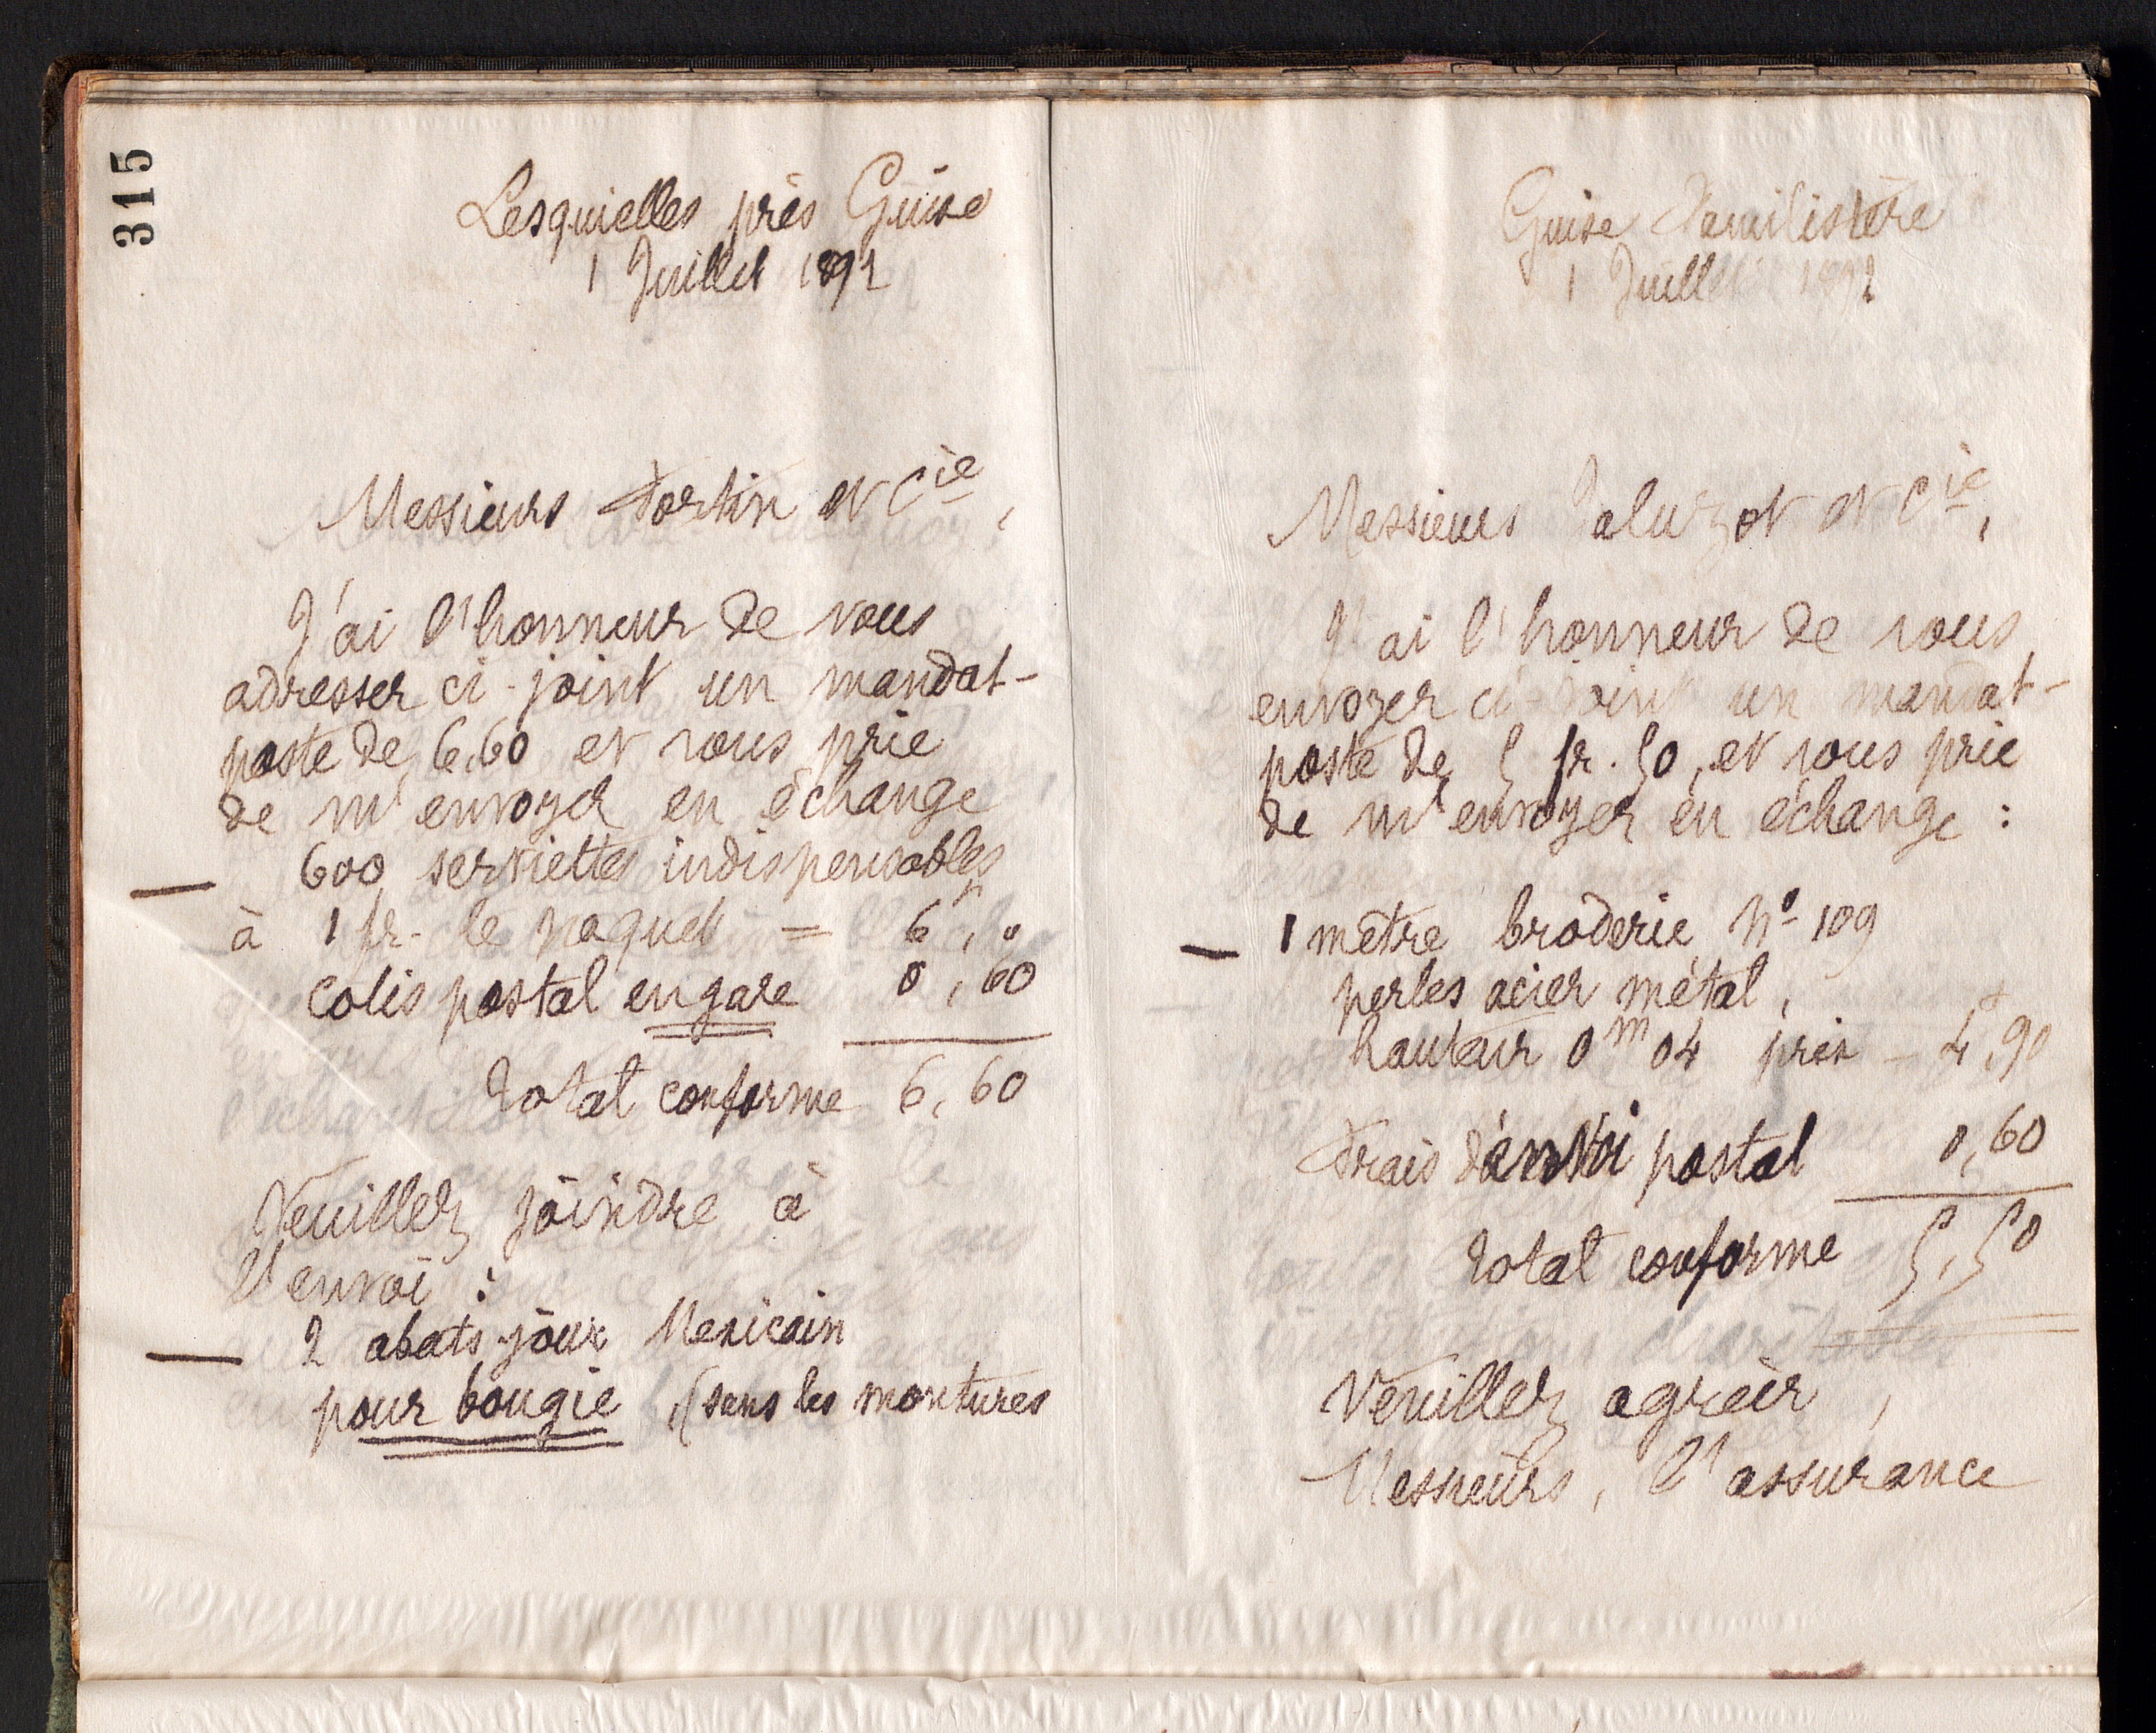 315
Lesquielles près Guise
1 Juillet 1892
Messieurs Fortin et Cie,
J'ai l'honneur de vous
adresser ci-joint un mandat-
poste de 6,60 et vous prie
de m'envoyer en échange
600 serviettes indispensables
à 1 fr. le paquet = 6, "
colis postal en gare 0,60
total conforme 6,60
Veuillez joindre à
l'envoi :
2 abats-jour Mexicain
pour bougie, (sans les montures
Guise Familistère
1 Juillet 1892
Messieurs Jaluzot et Cie,
J'ai l'honneur de vous
envoyer ci-joint un mandat-
poste de 5 fr. 50, et vous prie
de m'envoyer en échange :
1 mètre broderie No 109
perles acier métal,
hauteur 0m 04 prix - 4,90
Frais d'envoi postal 0,60
total conforme 5,50
Veuillez agréer,
Messieurs, l'assurance